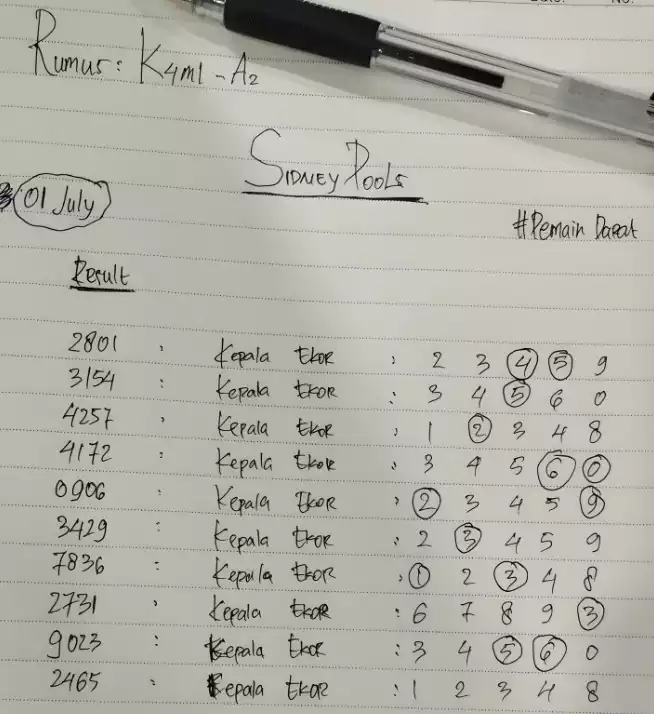 Rumus: K4m1 - A2
SIDNEY POOLS
01 July
#Pemain Darat
Result
2801 : Kepala EKOR : 2 3 4 5 9
3154 : Kepala EKOR : 3 4 5 6 0
4257 : Kepala EKOR : 1 2 3 4 8
4172 : Kepala EKOR : 3 4 5 6 0
0906 : Kepala EKOR : 2 3 4 5 9
3429 : Kepala EKOR : 2 3 4 5 9
7836 : Kepala EKOR : 1 2 3 4 8
2731 : Kepala EKOR : 6 7 8 9 3
9023 : Kepala EKOR : 3 4 5 6 0
2465 : Kepala EKOR : 1 2 3 4 8